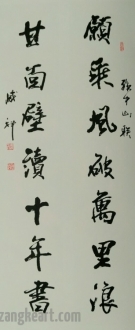 孫中山聯
願乘風破萬里浪
甘面壁讀十年書
zangkeart.com